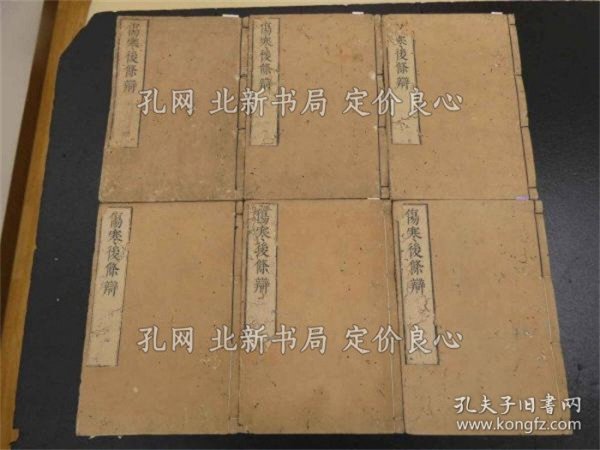 傷寒後條辯
傷寒後條辯
寒後條辯
孔网 北新书局 定价良心
傷寒後條辯
傷寒後條辯
傷寒後條辯
孔网 北新书局 定价良心
孔夫子旧书网
www.kongfz.com